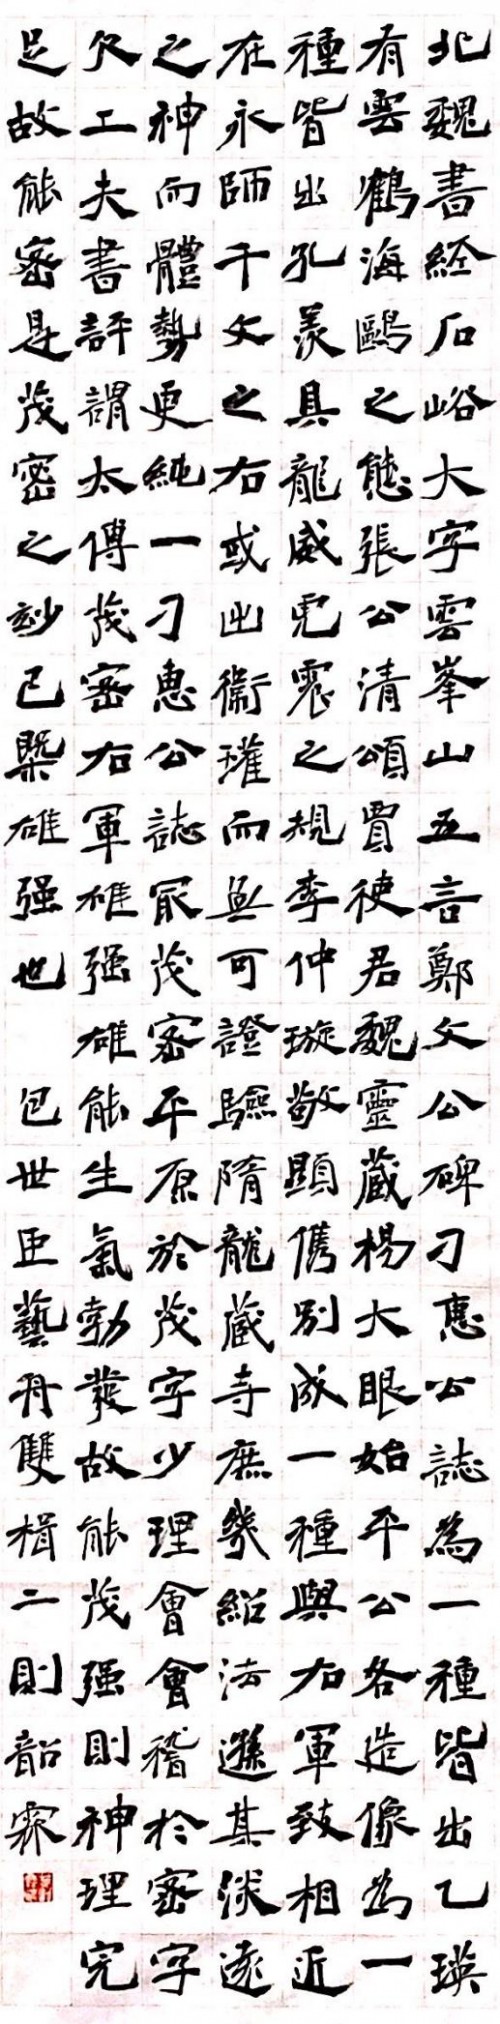 北魏書經石峪大字雲峯山五言鄭文公碑刁惠公誌為一種皆出乙瑛
有雲鶴海鷗之態張公清頌賈使君魏靈藏楊大眼始平公各造像為一
種皆出孔羨具龍威虎震之規李仲璇敬顯儁別成一種與右軍致相近
在永師千文之右或出衞瓘而無可證驗隋龍藏寺庶幾紹法遜其淡遠
之神而體勢更純一刁惠公誌冣茂密平原於茂字少理會會稽於密字
欠工夫書評謂太傅茂密右軍雄强雄能生氣勃發故能茂强則神理完
足故能密是茂密之妙已槩雄强也 包世臣藝舟雙楫二則韶